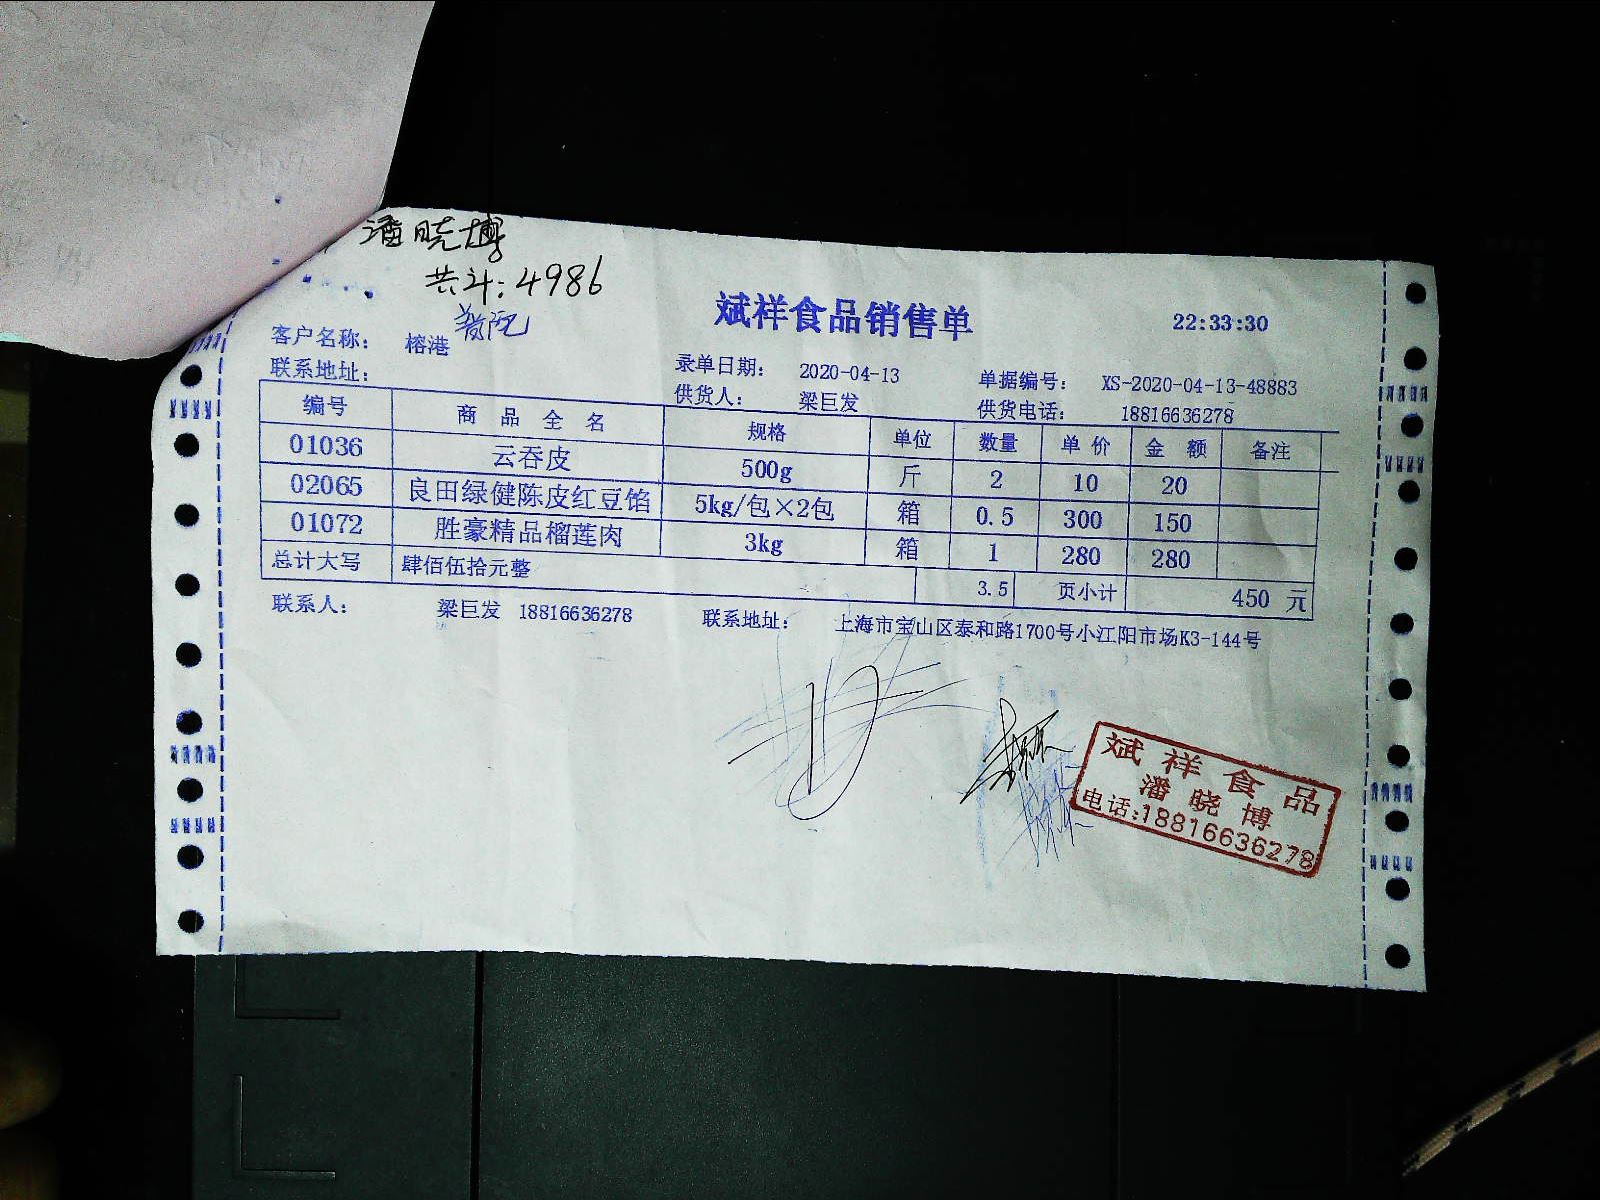 潘晓博
共计:4986
斌祥食品销售单
22:33:30
客户名称: 榕港
录单日期: 2020-04-13 单据编号: XS-2020-04-13-48883
联系地址:
供货人: 梁巨发 供货电话: 18816636278
编号 商品全名 规格 单位 数量 单价 金额 备注
01036 云吞皮 500g 斤 2 10 20
02065 良田绿健陈皮红豆馅 5kg/包×2包 箱 0.5 300 150
01072 胜豪精品榴莲肉 3kg 箱 1 280 280
总计大写 肆佰伍拾元整 3.5 页小计 450 元
联系人: 梁巨发 18816636278 联系地址: 上海市宝山区泰和路1700号小江阳市场K3-144号
斌祥食品
潘晓博
电话:18816636278